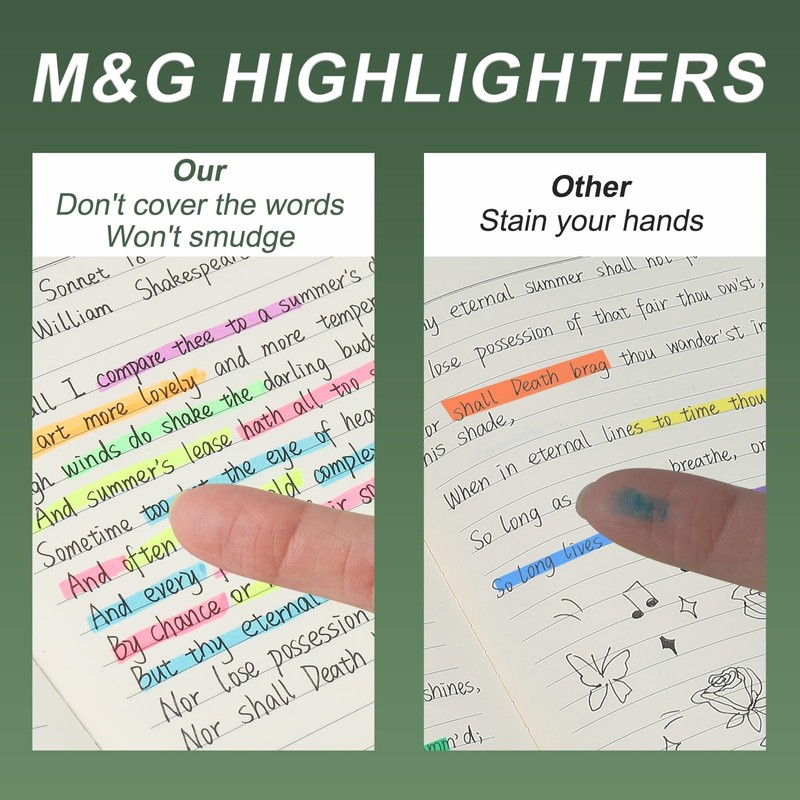 M&G HIGHLIGHTERS
Our
Don't cover the words
Won't smudge
Sonnet 18
William Shakespeare
all I compare thee to a summer's d
art more lovely and more temper
gh winds do shake the darling buds
And summer's lease hath all too s
Sometime too the eye of hea
And often complex
And every
By chance or
But thy eternal
Nor lose possession
Nor shall Death
Other
Stain your hands
y eternal summer shall not f
lose possession of that fair thou ow'st;
or shall Death brag thou wander'st in
his shade,
When in eternal lines to time thou
So long as breathe, or
So long lives
shines,
mm'd;